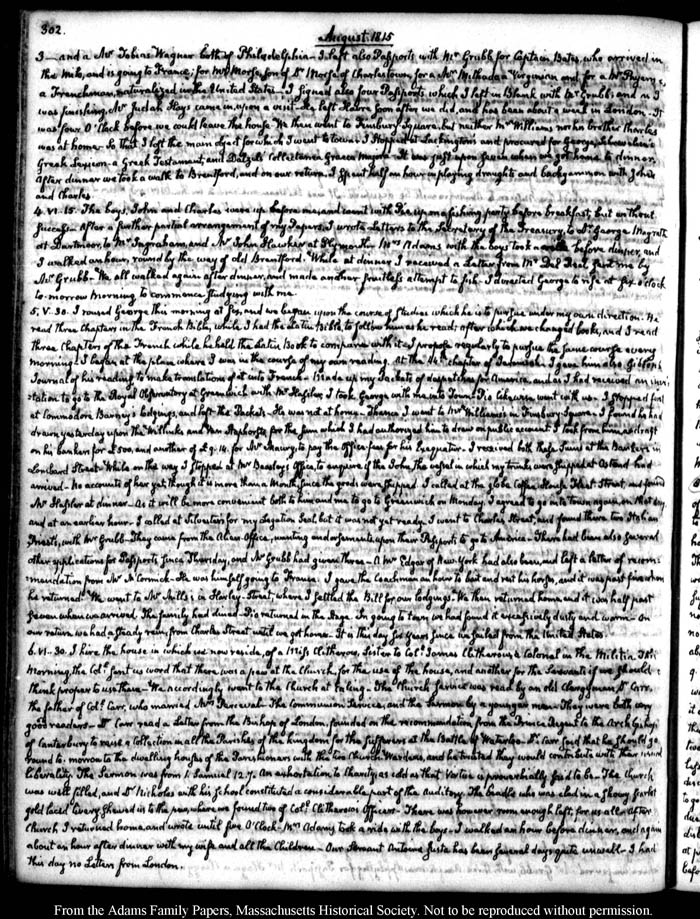 302.
August. 1815
3— and a Mr Tobias Wagner both of Philadelphia. I left also Passports with Mr Grubb for Captain Bates, who arrived in
the Milo, and is going to France; for Mr Morse, son of Dr Morse of Charlestown, for a Mr a Virginian and for a Mr
a Frenchman, naturalized in the United States. I signed also four Passports which I left in Blank with Mr Grubb; and as I
was finishing, Mr Judah Hays came in, upon a visit. He left Havre soon after we did, and has been about a week in London. It
was four O'Clock before we could leave the house. We then went to Finsbury Square, but neither Mrs Williams nor her brother Charles
was at home. So that I lost the main object for which I went to town. I stopped at Lackington's and procured for George, Schrevelius's
Greek Lexicon, a Greek Testament, and Dalzel's Collectanea Graeca Majora. It was just upon seven when we got home to dinner.
After dinner we took a walk to Brentford, and on our return, I spent half an hour in playing draughts and backgammon with John
and Charles.
4. VI. 15. The boys, John and Charles were up before me, and went with upon a fishing party before breakfast, but without
success. After a further partial arrangement of my Papers, I wrote Letters to the Secretary of the Treasury, to Dr George Magrath
at Dartmoor, to Mr Ingraham, and Mr John Hawker at Plymouth. Mrs Adams with the boys took a before dinner, and
I walked an hour, round by the way of old Brentford. While at dinner I received a Letter from Mr Del Real, sent me by
Mr Grubb. We all walked again after dinner, and made another fruitless attempt to fish. I directed George to rise at six o'clock
to-morrow morning to commence studying with me.
5. V. 30. I roused George this morning at six, and we began upon the course of Studies which he is to pursue under my own direction. He
read three Chapters in the French Bible, while I had the Latin Bible to follow him as he read; after which we changed books, and I read
three Chapters of the French while he held the Latin Book to compare with it. I propose regularly to pursue the same course every
morning. I began at the place where I was in the course of my own reading. At the chapter of Jeremiah. I gave him also Gibbon's
Journal of his reading, to make translations of it into French. Made up my Packets of despatches for America, and as I had received an invi-
tation to go to the Royal Observatory at Greenwich with Mr Hassler, I took George with me into Town. Pio likewise went with us. I stopped first
at Commodore Barney's lodgings, and left the Packets. He was not at home. Thence I went to Mr Williams's in Finsbury Square. I found he had
drawn yesterday upon the Willinks and Van Staphorsts for the sum which I had authorized him to draw on public account. I took from him a draft
on his bankers for £500, and another of £9. 14. for Mr Maury, to pay the Office fees for his Exequatur. I received both these sums at the Bankers in
Lombard Street. While on the way I stopped at Mr Bazeley's Office, to enquire if the John, the vessel in which my trunks were shipped at Ostend had
arrived. No accounts of her yet, though it is more than a Month, since the goods were shipped. I called at the Globe Coffee House, Fleet Street, and found
Mr Hassler at dinner. As it will be more convenient both to him and me to go to Greenwich on Monday, I agreed to go into town again on that day,
and at an earlier hour. I called at Silvester's for my Legation Seal, but it was not yet ready. I went to Charles Street, and found there two Italian
Priests, with Mr Grubb. They came from the Alien Office, wanting endorsements upon their Passports to go to America. There had been also several
other applications for Passports, since Thursday, and Mr Grubb had given three. A Mr Edgar of New-York had also been, and left a letter of recom-
mendation from Mr McCormick. He was himself going to France. I gave the Coachman an hour to bait and rest his horses, and it was past five when
he returned. We went to Mr Mills's in Harley-Street, where I settled the Bill for our lodgings. We then returned home, and it was half past
seven when we arrived. The family had dined. Pio returned in the Stage. In going to town we had found it excessively dusty and warm. On
our return we had a steady rain, from Charles Street until we got home. It is this day six years since we sailed from the United States.
6. VI. 30. I hire the house in which we now reside, of a Miss Clitherow, Sister to Colonel James Clitherow a Colonel in the Militia. This
morning, the Colonel sent us word that there was a pew at the Church, for the use of the house, and another for the Servants if we should
think proper to use them. We accordingly went to the Church at Ealing. The Church service was read by an old Clergyman, Dr Carr,
the father of Colonel Carr, who married Mrs Perceval. The Communion Service, and the Sermon by a younger man. They were both very
good readers. Dr Carr read a Letter from the Bishop of London, founded on the recommendation from the Prince Regent to the Arch Bishop
of Canterbury to raise a Collection in all the Parishes of the kingdom for the sufferers at the Battle of Waterloo. Dr Carr said that he should go
round to-morrow to the dwelling houses of the Parishioners with the two Church Wardens, and he trusted they would contribute with their usual
liberality. The Sermon was from 1. Samuel 12. 7. An exhortation to charity as cold as that Virtue is proverbially said to be. The Church
was well filled, and Dr Nicholas with his School constituted a considerable part of the Auditory. The beadle who was clad in a showy scarlet
gold laced livery shewed us to the pew, where we found two of Colonel Clitherow's Officers. There was however room enough left, for us all. After
Church I returned home, and wrote until five O'Clock. Mrs Adams took a ride with the boys. I walked an hour before dinner, and again
about an hour after dinner with my wife and all the Children. Our Servant Antoine Giusta has been several days quite unwell. I had
this day no Letters from London.
From the Adams Family Papers, Massachusetts Historical Society. Not to be reproduced without permission.